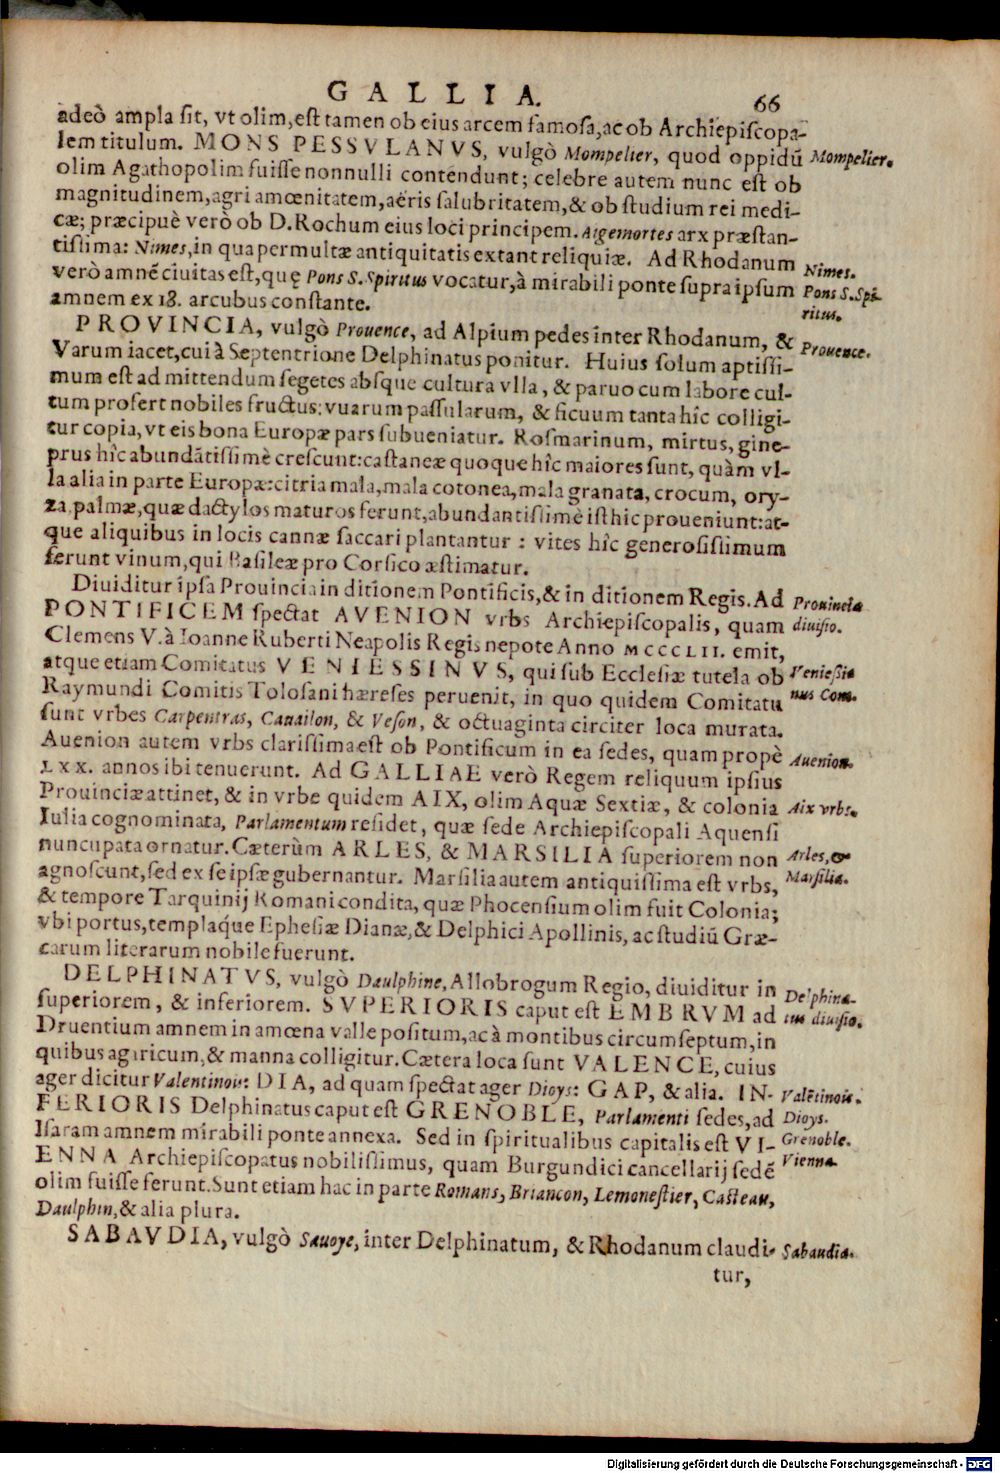 GALLIA. 66
adeò ampla sit, vt olim, est tamen ob eius arcem famosa, ac ob Archiepiscopa-
lem titulum. MONS PESSVLANVS, vulgò Mompelier, quod oppidũ Mompelier.
olim Agathopolim fuisse nonnulli contendunt; celebre autem nunc est ob
magnitudinem, agri amœnitatem, aëris salubritatem, & ob studium rei medi-
cæ; præcipuè verò ob D. Rochum eius loci principem. Aigemortes arx præstan-
tissima: Nimes, in qua permultæ antiquitatis extant reliquiæ. Ad Rhodanum Nimes.
verò amnẽ ciuitas est, quę Pons S. Spiritus vocatur, à mirabili ponte supra ipsum Pons S. Spi-
amnem ex 18. arcubus constante. ritus.
PROVINCIA, vulgò Prouence, ad Alpium pedes inter Rhodanum, & Prouence.
Varum iacet, cui à Septentrione Delphinatus ponitur. Huius solum aptissi-
mum est ad mittendum segetes absque cultura vlla, & paruo cum labore cul-
tum profert nobiles fructus: vuarum passularum, & ficuum tanta hîc colligi-
tur copia, vt eis bona Europæ pars subueniatur. Rosmarinum, mirtus, gine-
prus hîc abundãtissimè crescunt: castaneæ quoque hîc maiores sunt, quàm vl-
la alia in parte Europæ: citria mala, mala cotonea, mala granata, crocum, ory-
za, palmæ, quæ dactylos maturos ferunt, abundantissimè isthic proueniunt: at-
que aliquibus in locis cannæ saccari plantantur : vites hîc generosissimum
ferunt vinum, qui Basileæ pro Corsico æstimatur.
Diuiditur ipsa Prouincia in ditionem Pontificis, & in ditionem Regis. Ad Prouincia
PONTIFICEM spectat AVENION vrbs Archiepiscopalis, quam diuisio.
Clemens V. à Ioanne Ruberti Neapolis Regis nepote Anno MCCCLII. emit,
atque etiam Comitatus VENIESSINVS, qui sub Ecclesiæ tutela ob Veniessi
Raymundi Comitis Tolosani hæreses peruenit, in quo quidem Comitatu nus Com.
sunt vrbes Carpentras, Cauailon, & Veson, & octuaginta circiter loca murata.
Auenion autem vrbs clarissima est ob Pontificum in ea sedes, quam propè Auenion.
LXX. annos ibi tenuerunt. Ad GALLIAE verò Regem reliquum ipsius
Prouinciæ attinet, & in vrbe quidem AIX, olim Aquæ Sextiæ, & colonia Aix vrbs.
Iulia cognominata, Parlamentum residet, quæ sede Archiepiscopali Aquensi
nuncupata ornatur. Cæterùm ARLES, & MARSILIA superiorem non Arles, &
agnoscunt, sed ex se ipsæ gubernantur. Marsilia autem antiquissima est vrbs, Marsilia.
& tempore Tarquinij Romani condita, quæ Phocensium olim fuit Colonia;
vbi portus, templaq́ue Ephesiæ Dianæ, & Delphici Apollinis, ac studiũ Græ-
carum literarum nobile fuerunt.
DELPHINATVS, vulgò Daulphine, Allobrogum Regio, diuiditur in Delphina-
superiorem, & inferiorem. SVPERIORIS caput est EMBRVM ad tus diuisio.
Druentium amnem in amœna valle positum, ac à montibus circumseptum, in
quibus agaricum, & manna colligitur. Cætera loca sunt VALENCE, cuius
ager dicitur Valentinois: DIA, ad quam spectat ager Dioys: GAP, & alia. IN- Valẽtinois.
FERIORIS Delphinatus caput est GRENOBLE, Parlamenti sedes, ad Dioys.
Isaram amnem mirabili ponte annexa. Sed in spiritualibus capitalis est VI- Grenoble.
ENNA Archiepiscopatus nobilissimus, quam Burgundici cancellarij sedẽ Vienna.
olim fuisse ferunt. Sunt etiam hac in parte Romans, Briancon, Lemonestier, Casteau,
Daulphin, & alia plura.
SABAVDIA, vulgò Sauoye, inter Delphinatum, & Rhodanum claudi- Sabaudia.
tur,
Digitalisierung gefördert durch die Deutsche Forschungsgemeinschaft - DFG